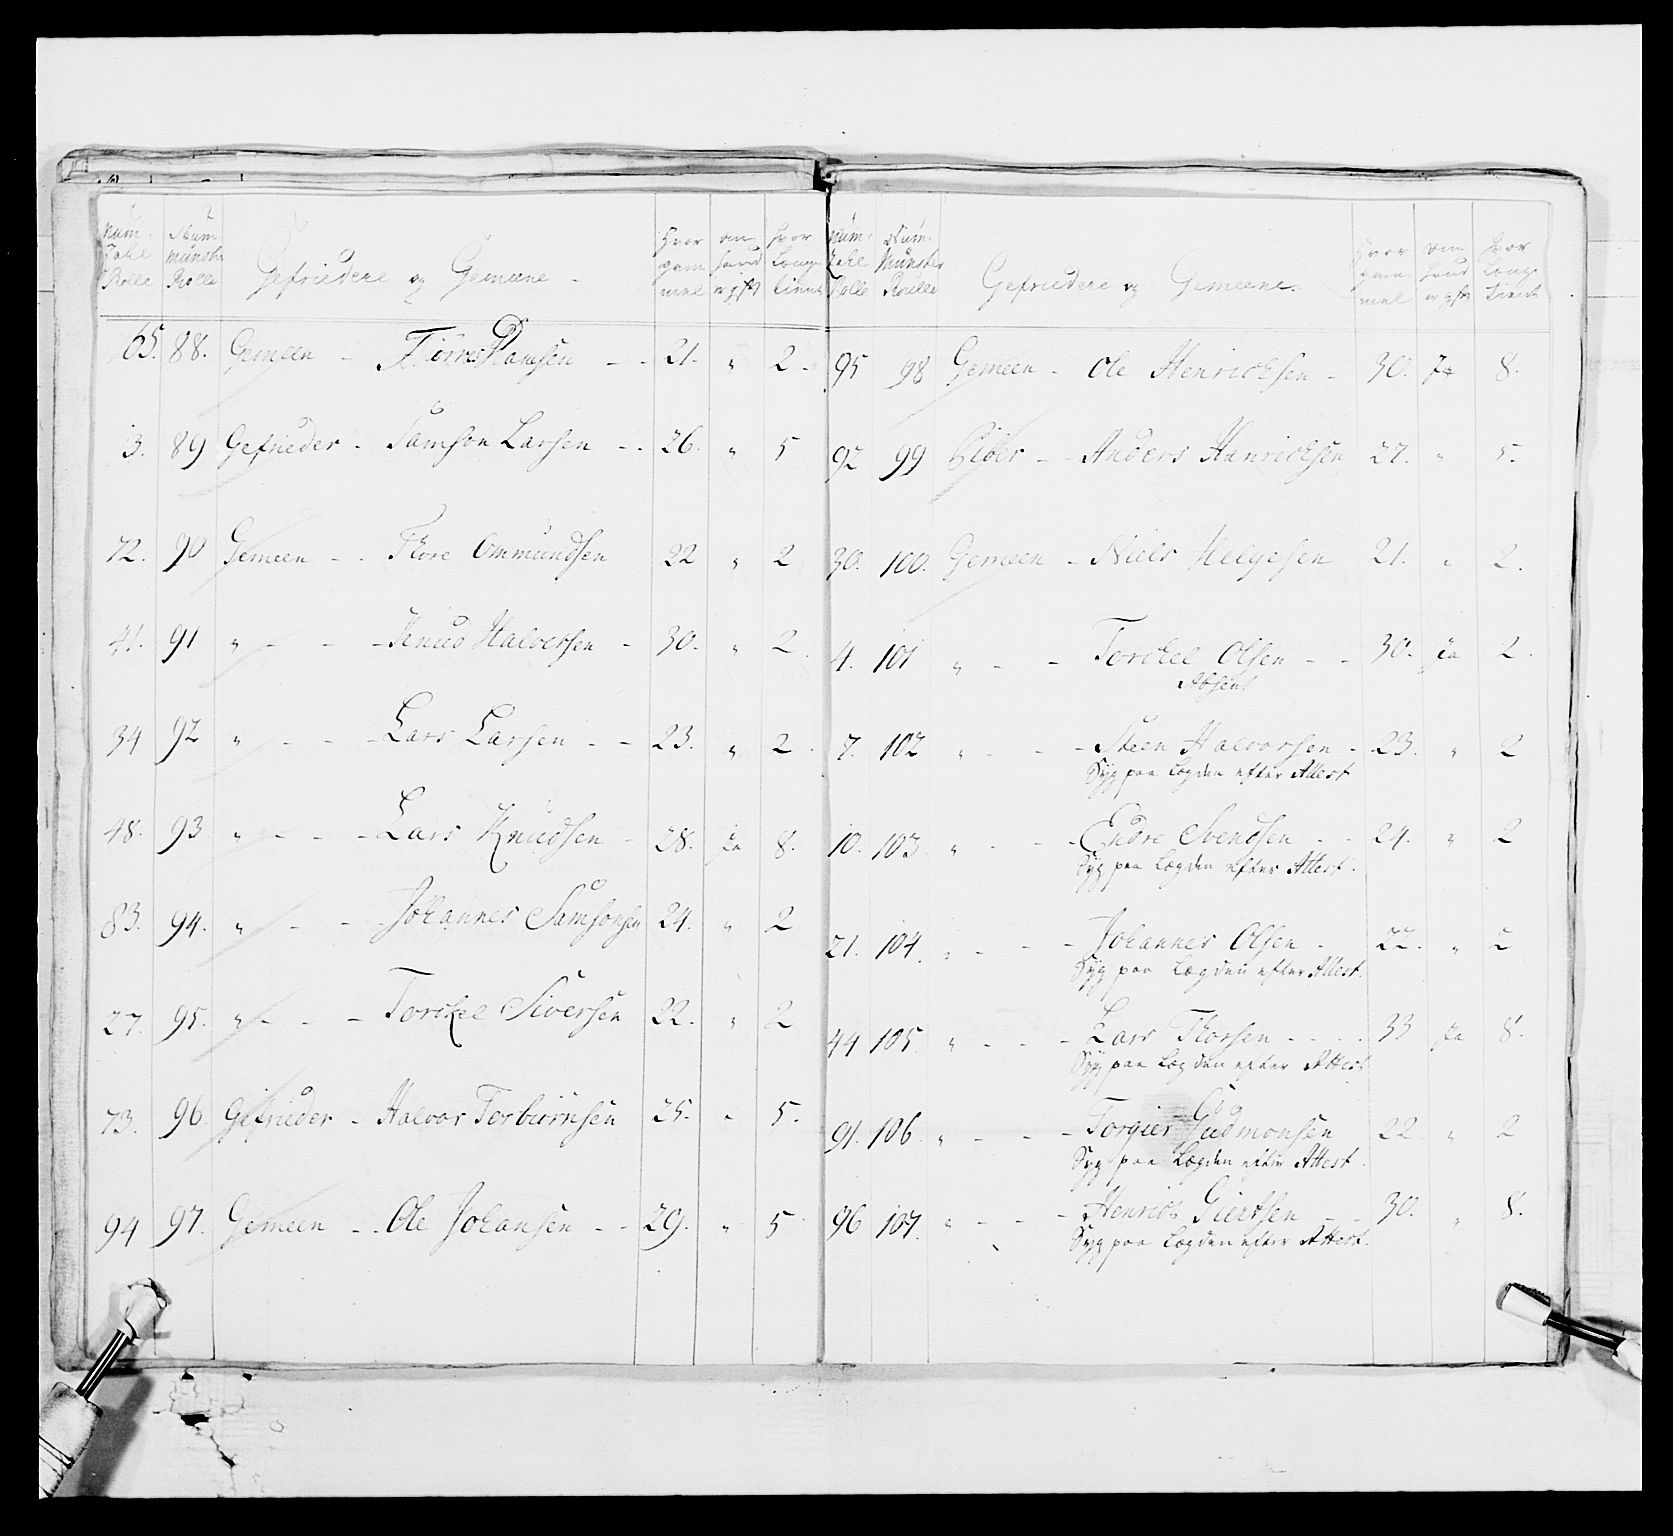 Num. Zahl Rolle | Num. Münster Rolle | Gefriedere og Gemeene | Hvor gammel | om hand er gift | Hvor længe tient
65. 88. Gemeen - - - 21. " 2
3. 89 Gefrieder - Samson Larsen - - 26. " 5
72. 90 Gemeen - - Thore Ommundsen 22 " 2
41. 91 " - - - Knud Halvorsen - 30. " 2
34 92 " - - - Lars Larsen - - 23. " 2
48. 93 " - - - Lars Knudsen - 28. Ja 8.
83. 94. " - - Johannes Samsonsen 24. " 2
27. 95. " - - - Torckel Siversen 22. " 2
73. 96. Gefrieder - Halvor Torbiörnsen 25. " 5.
94 97. Gemeen - - Ole Johansen - - 29. " 5
Num. Zahl Rolle | Num. Münster Roulle | Gefriedere og Gemeene | Hvor gammel | om hand er gift | Hvor længe tient
95 98 Gemeen - Ole Henricksen - 30. Ja 8.
92 99 Piber - - Anders Hanricksen 27. " 5.
30. 100. Gemeen - Niels Helgesen 21. " 2.
4. 101 " - - Torckel Olsen - - 30. Ja 2.
Absent
7. 102 " - - - Steen Halvorsen - 23. " 2
Syg paa Lægden efter Attest
10. 103 " - - - Endre Svendsen - - 24. " 2
Syg paa Lægden efter Attest.
21. 104. " - - - Johannes Olsen - 22. " 2
Syg paa Lægden efter Attest.
44 105 " - - - Lars Thorsen - - - - 33 Ja 8.
Syg paa Lægden efter Attest
91. 106. " - - - Torgier Gudmonsen 22. " 2
Syg paa Lægden efter Attest.
96 107. " - - - Henrick Giertsen - - 30. " 8.
Syg paa Lægden efter Attest.